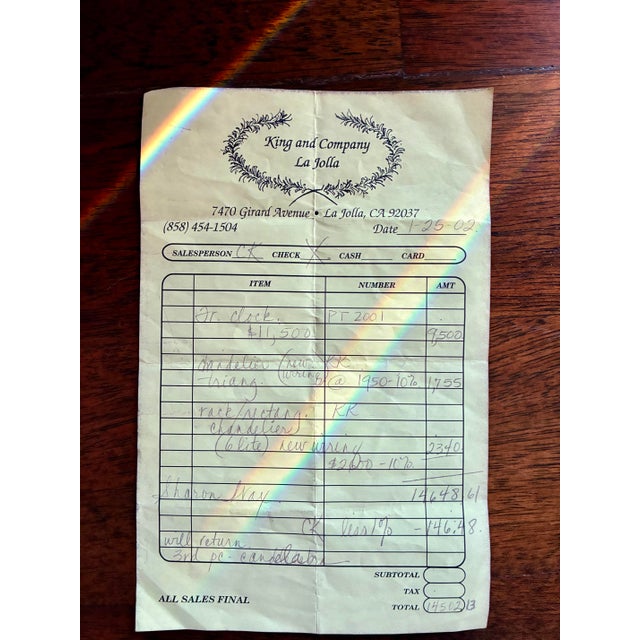 King and Company
La Jolla
7470 Girard Avenue • La Jolla, CA 92037
(858) 454-1504 Date 1-25-02
SALESPERSON CK CHECK X CASH CARD
ITEM NUMBER AMT
Fr. clock. PT 2001
$11,500 9,500
(new KK
wiring)
@ 1950-10% 1,755
rack/rectang. KK
chandelier)
(6 lite) new wiring 2340
$2600-10%
Sharon 14648.61
CK less 1% -146.48
will return
3rd pc.
SUBTOTAL
TAX
ALL SALES FINAL TOTAL 14502 13